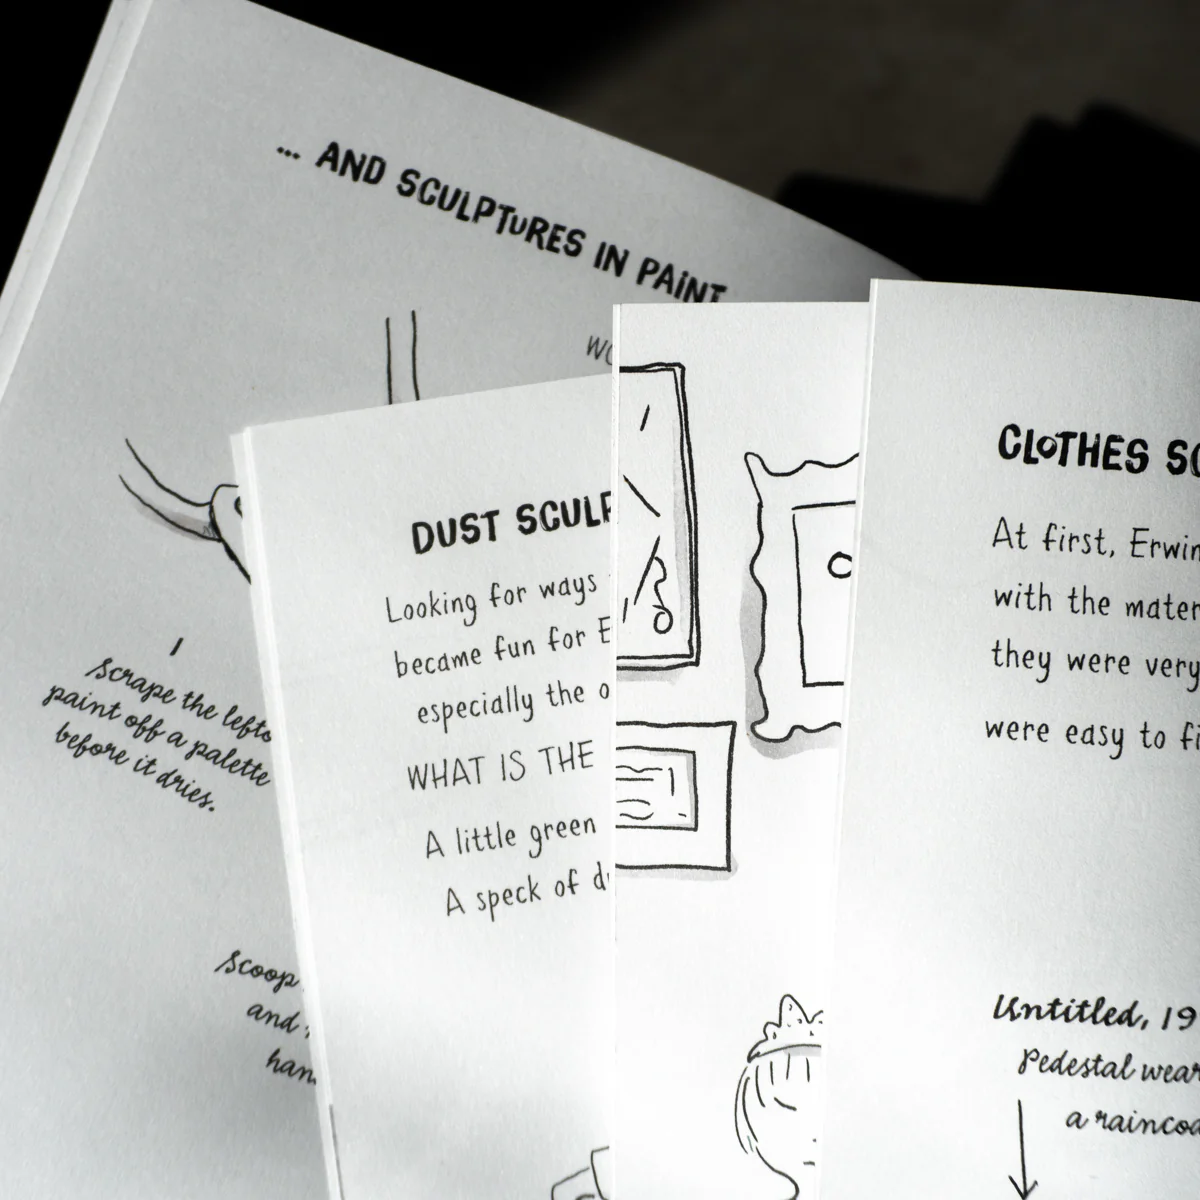 ... AND SCULPTURES IN PAINT
Scrape the
paint off a palette
before it dries.
Scoop
and
DUST
Looking for ways
became fun for
especially the
WHAT IS THE
A little green
A speck of
CLOTHES
At first,
with the
they were very
were easy to
Untitled,
Pedestal
a